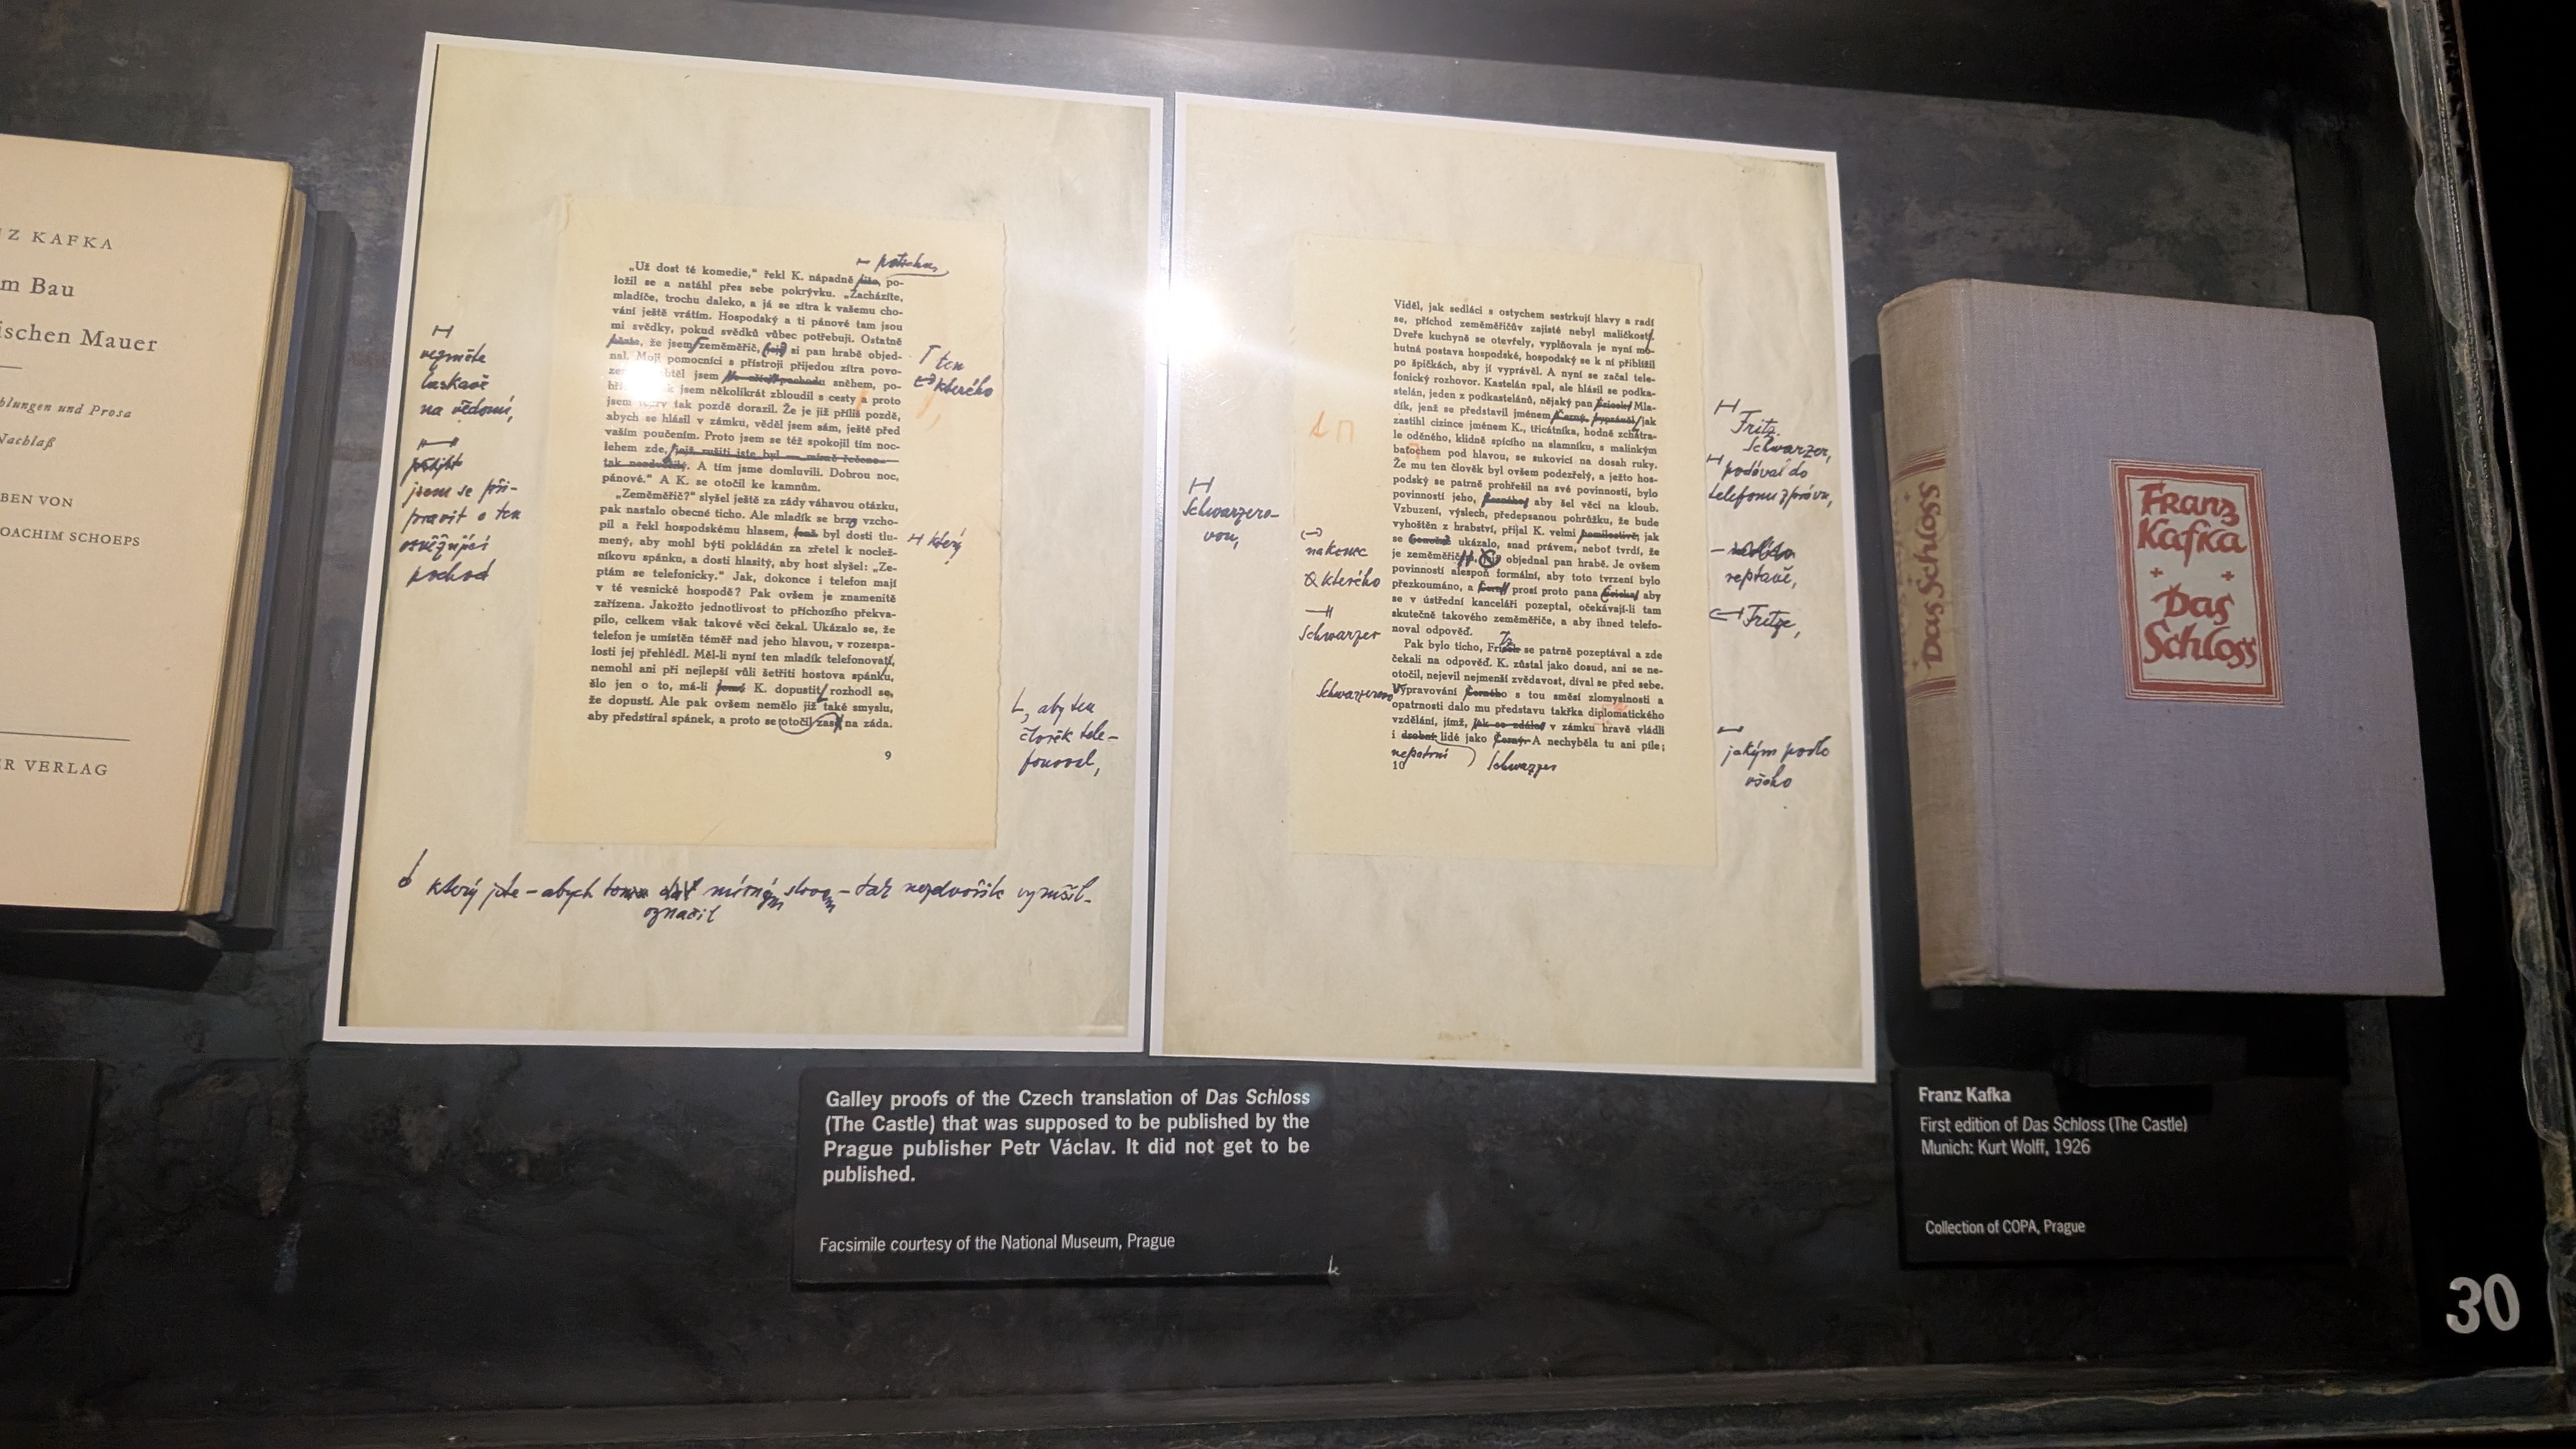 Z KAFKA
m Bau
ischen Mauer
hlungen und Prosa
Nachlaß
BEN VON
OACHIM SCHOEPS
R VERLAG
potichu,
„Už dost té komedie,“ řekl K. nápadně tiše, po-
ložil se a natáhl přes sebe pokrývku. „Zacházíte,
mladíče, trochu daleko, a já se zítra k vašemu cho-
vání ještě vrátím. Hospodský a ti pánové tam jsou
mi svědky, pokud svědků vůbec potřebuji. Ostatně
že jsem zeměměřič, si pan hrabě objed-
nal. Moji pomocníci s přístroji přijedou zítra povo-
chtěl jsem sněhem, po-
jsem několikrát zbloudil s cesty a proto
jsem tak pozdě dorazil. Že je již příliš pozdě,
abych se hlásil v zámku, věděl jsem sám, ještě před
vaším poučením. Proto jsem se též spokojil tím noc-
lehem zde, jejž rušiti jste byl — mírně řečeno —
tak nezdvořilý. A tím jsme domluvili. Dobrou noc,
pánové.“ A K. se otočil ke kamnům.
„Zeměměřič?“ slyšel ještě za zády váhavou otázku,
pak nastalo obecné ticho. Ale mladík se brzo vzcho-
pil a řekl hospodskému hlasem, jenž byl dosti tlu-
mený, aby mohl býti pokládán za zřetel k noclež-
níkovu spánku, a dosti hlasitý, aby host slyšel: „Ze-
ptám se telefonicky.“ Jak, dokonce i telefon mají
v té vesnické hospodě? Pak ovšem je znamenitě
zařízena. Jakožto jednotlivost to příchozího překva-
pilo, celkem však takové věci čekal. Ukázalo se, že
telefon je umístěn téměř nad jeho hlavou, v rozespa-
losti jej přehlédl. Měl-li nyní ten mladík telefonovati,
nemohl ani při nejlepší vůli šetřiti hostova spánku,
šlo jen o to, má-li K. dopustiti, rozhodl se,
že dopustí. Ale pak ovšem nemělo již také smyslu,
aby předstíral spánek, a proto se otočil zase na záda.
9
vezměte
laskavě
na vědomí,
jsem se při-
pravit o ten
osvěžující
pochod
ten
kterého
který
, aby ten
člověk tele-
fonoval,
který jste – abych mírným slovem – tak nezdvořile vyrušil.
označil
Viděl, jak sedláci s ostychem sestrkují hlavy a radí
se, příchod zeměměřičův zajisté nebyl maličkostí.
Dveře kuchyně se otevřely, vyplňovala je nyní mo-
hutná postava hospodské, hospodský se k ní přiblížil
po špičkách, aby jí vyprávěl. A nyní se začal tele-
fonický rozhovor. Kastelán spal, ale hlásil se podka-
stelán, jeden z podkastelánů, nějaký pan Mla-
dík, jenž se představil jménem Černý, vyprávěl, jak
zastihl cizince jménem K., třicátníka, hodně zchátra-
le oděného, klidně spícího na slamníku, s malinkým
batochem pod hlavou, se sukovicí na dosah ruky.
Že mu ten člověk byl ovšem podezřelý, a ježto hos-
podský se patrně prohřešil na své povinnosti, bylo
povinností jeho, Černého, aby šel věci na kloub.
Vzbuzení, výslech, předepsanou pohrůžku, že bude
vyhoštěn z hrabství, přijal K. velmi jak
se ukázalo, snad právem, neboť tvrdí, že
je zeměměřič, objednal pan hrabě. Je ovšem
povinností alespoň formální, aby toto tvrzení bylo
přezkoumáno, a Černý prosí proto pana aby
se v ústřední kanceláři pozeptal, očekávají-li tam
skutečně takového zeměměřiče, a aby ihned telefo-
noval odpověď.
Pak bylo ticho, se patrně pozeptával a zde
čekali na odpověď. K. zůstal jako dosud, ani se ne-
otočil, nejevil nejmenší zvědavost, díval se před sebe.
Vypravování Černého s tou směsí zlomyslnosti a
opatrnosti dalo mu představu takřka diplomatického
vzdělání, jímž, jak se zdálo, v zámku hravě vládli
i drobní lidé jako Černý. A nechyběla tu ani píle;
nepatrní
Schwarzer
10
Schwarzero-
vou,
nakonec
kterého
Schwarzer
Schwarzerovo
Fritz.
Schwarzer,
podával do
telefonu zprávu,
reptavě,
Fritze,
jakým podle
všeho
Franz
Kafka
Das
Schloss
Das Schloss
Galley proofs of the Czech translation of Das Schloss
(The Castle) that was supposed to be published by the
Prague publisher Petr Václav. It did not get to be
published.
Facsimile courtesy of the National Museum, Prague
Franz Kafka
First edition of Das Schloss (The Castle)
Munich: Kurt Wolff, 1926
Collection of COPA, Prague
30